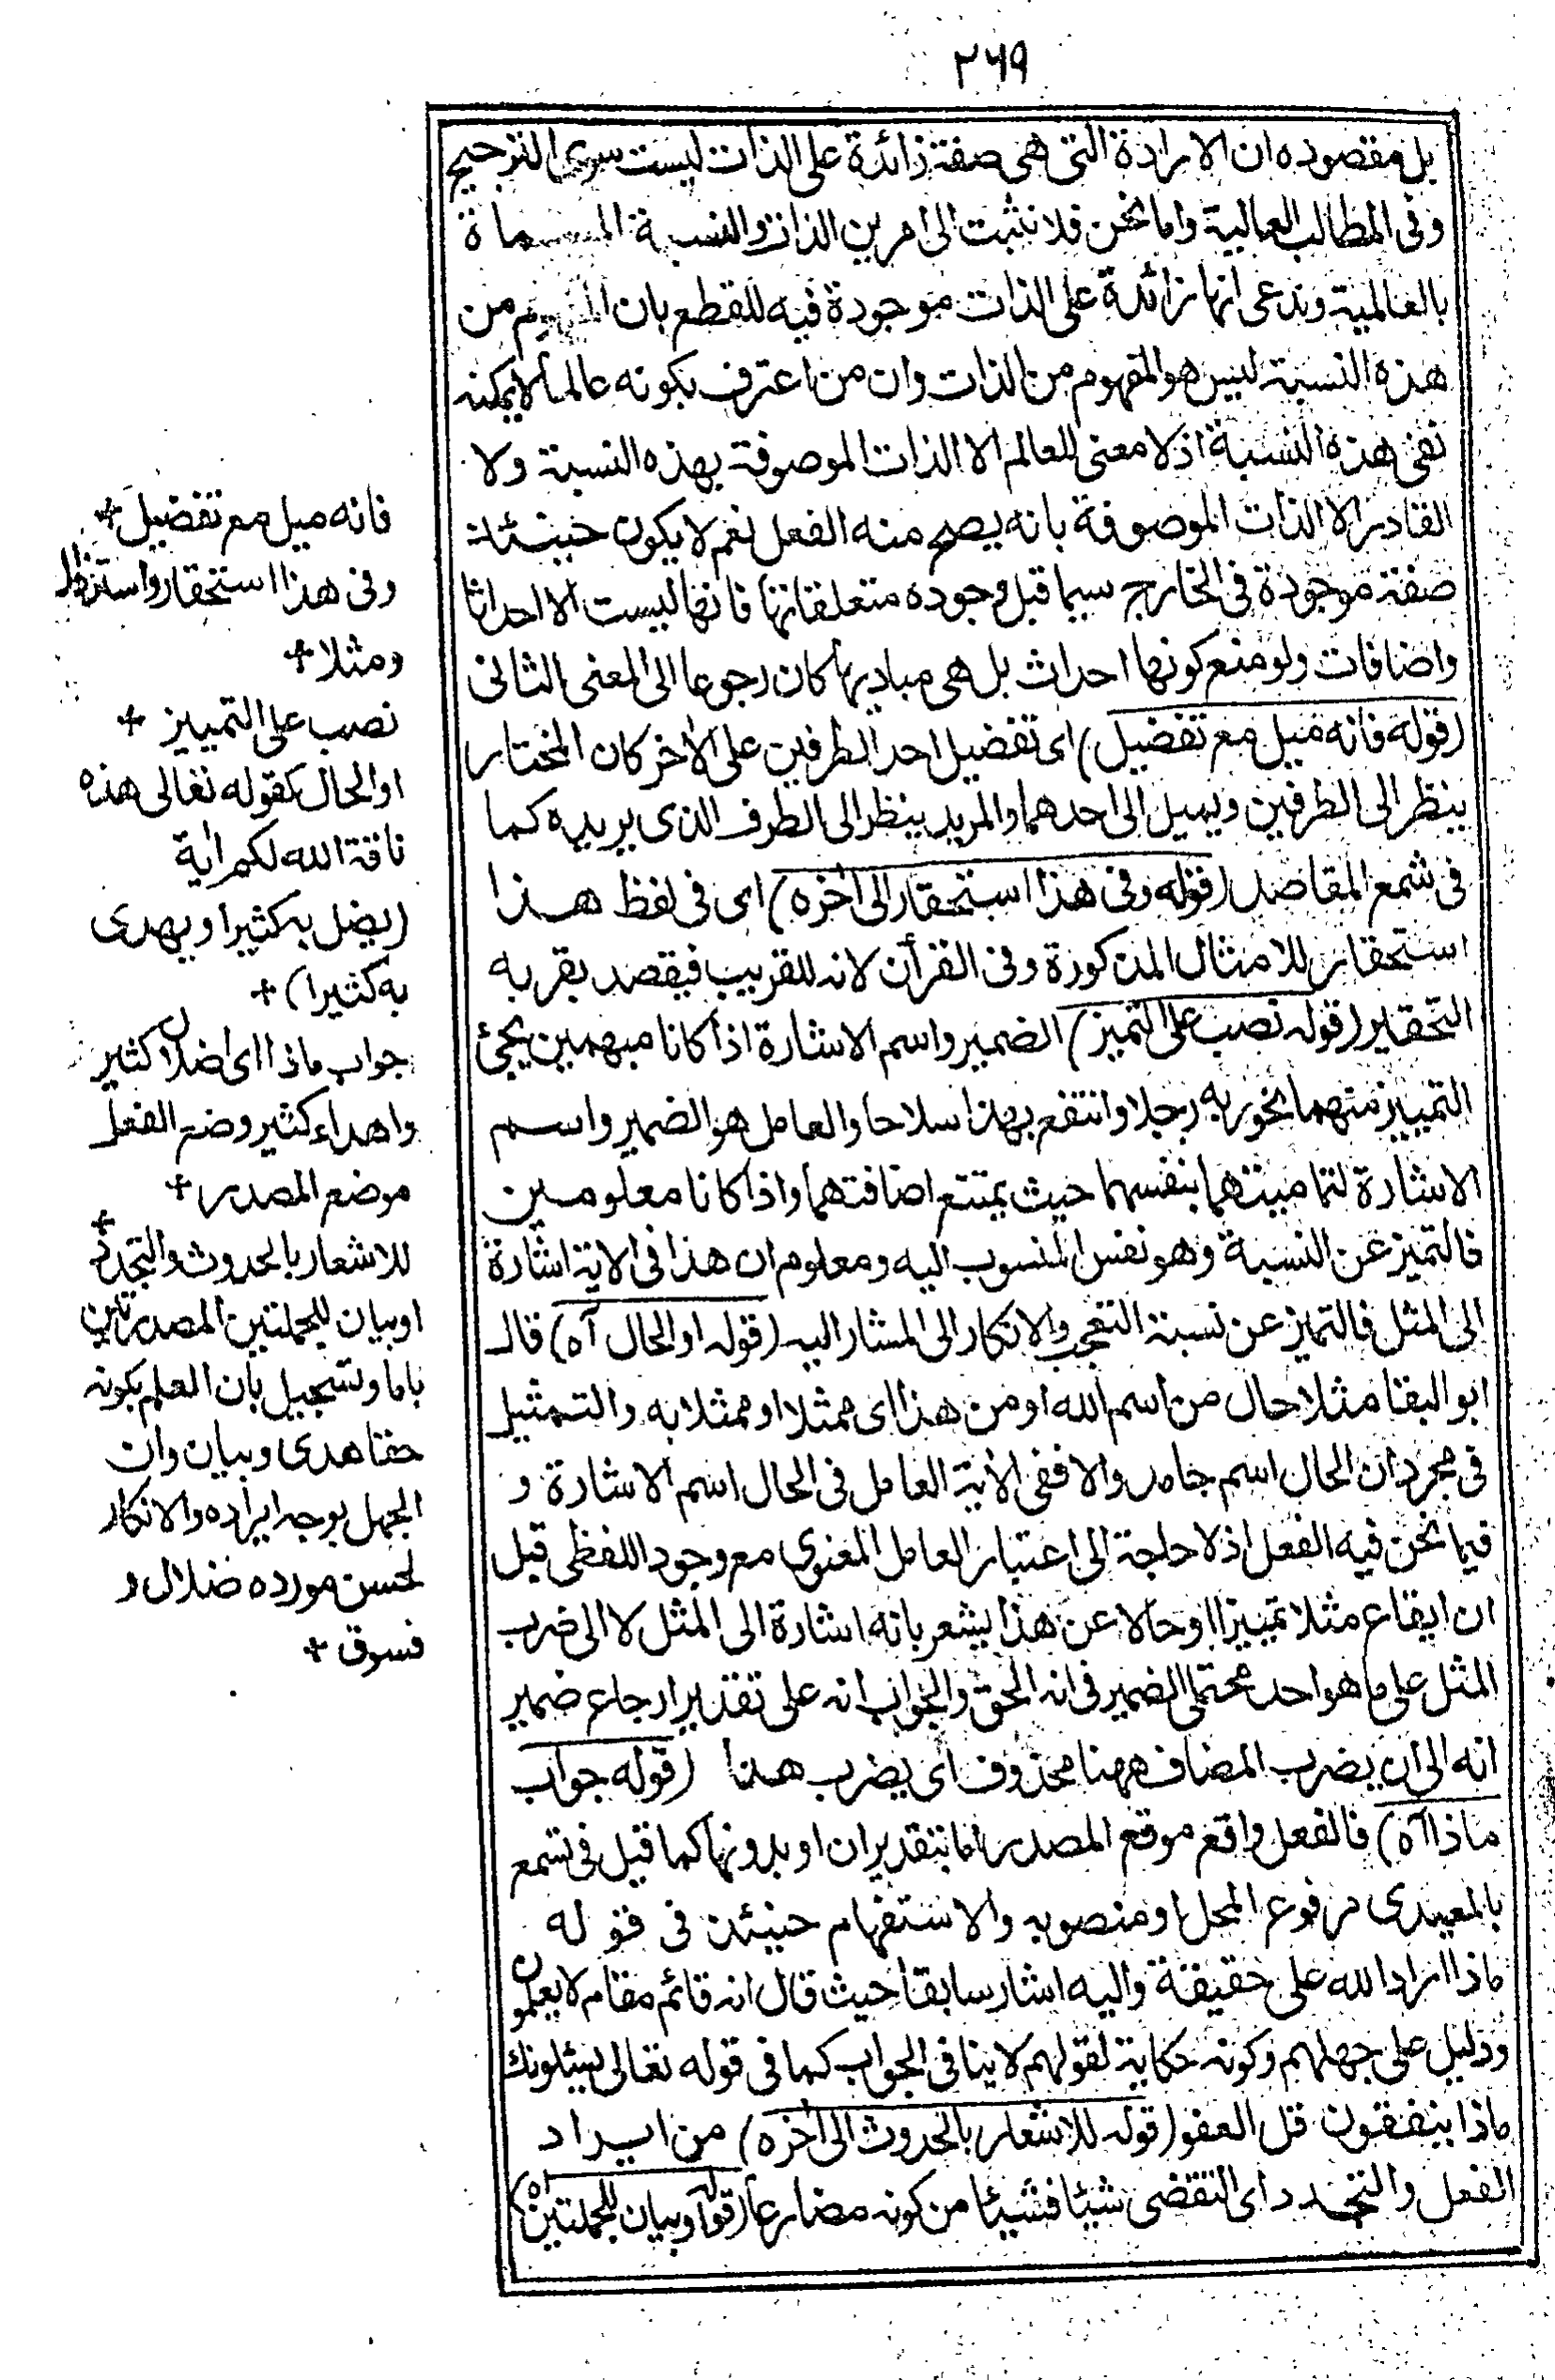 ٢٦٩
بل مقصوده ان الارادة التى هى صفة زائدة على الذات ليست سوى الترجيح
وفى المطالب العالية واما نحن فلا نثبت الى امرين الذات والنسبة المسماة
بالعالمية وندعى انها زائدة على الذات موجودة فيه للقطع بان المفهوم من
هذه النسبة ليس هو المفهوم من الذات وان من اعترف بكونه عالما لا يمكنه
نفى هذه النسبة اذ لا معنى للعالم الا الذات الموصوفة بهذه النسبة ولا
القادر الا الذات الموصوفة بانه يصح منه الفعل نعم لا يكون حينئذ
صفة موجودة فى الخارج سيما قبل وجوده متعلقاتها فانها ليست الا احداثا
واضافات ولو منع كونها احداث بل هى مباديها كان رجوعا الى المعنى الثانى
(قوله فانه ميل مع تفضيل) اى تفضيل احد الطرفين على الاخر كان المختار
ينظر الى الطرفين ويميل الى احدهما والمريد ينظر الى الطرف الذى يريده كما
فى شمع المقاصد (قوله وفى هذا استحقار الى اخره) اى فى لفظ هذا
استحقار للامثال المذكورة وفى القرآن لانه للقريب فيقصد بقربه
التحقير (قوله نصب على التميز) الضمير واسم الاشارة اذا كانا مبهمين يجئ
التمييز منهما نحو ربه رجلا وانتفع بهذا سلاحا والعامل هو الضمير واسم
الاشارة لتماميتهما بنفسهما حيث يمتنع اضافتهما واذا كانا معلومين
فالتميز عن النسبة وهو نفس المنسوب اليه ومعلوم ان هذا فى الاية اشارة
الى المثل فالتميز عن نسبة التعجب والانكار الى المشار اليه (قوله او الحال آه) قال
ابو البقا مثلا حال من اسم الله او من هذا اى ممثلا او ممثلا به والتمثيل
فى مجرد ان الحال اسم جامد والا ففى الأية العامل فى الحال اسم الاشارة و
فيما نحن فيه الفعل اذ لا حاجة الى اعتبار العامل المعنوى مع وجود اللفظى قيل
ان ايقاع مثلا تمييزا او حالا عن هذا يشعر بانه اشارة الى المثل لا الى ضرب
المثل على ما هو احد محتملى الضمير فى انه الحق والجواب انه على تقدير ارجاع ضمير
انه الى ان يضرب المضاف ههنا محذوف اى يضرب هذا (قوله جواب
ماذا آه) فالفعل واقع موقع المصدر اما بتقدير ان او بدونها كما قيل فى تسمع
بالمعيدى مرفوع المحل او منصوبه والاستفهام حينئذ فى قوله
ماذا اراد الله على حقيقة واليه اشار سابقا حيث قال انه قائم مقام لا يعلمون
ودليل على جهلهم وكونه حكاية لقولهم لا ينافى الجواب كما فى قوله تعالى يسئلونك
ماذا ينفقون قل العفو (قوله للاشعار بالحدوث الى اخره) من ايراد
الفعل والتجدد اى التقضى شيئا فشيئا من كونه مضارعا (قوله وبيان للجملتين آه)
فانه ميل مع تفضيل +
وفى هذا استحقار واسترذال
ومثلا +
نصب على التمييز +
او الحال كقوله تعالى هذه
ناقة الله لكم اية
(يضل به كثيرا ويهدى
به كثيرا) +
جواب ماذا اى اضلال كثير
واهداء كثير وضع الفعل
موضع المصدر +
للاشعار بالحدوث والتجدد +
او بيان للجملتين المصدرتين
باما وتسجيل بان العلم بكونه
حقا هدى وبيان وان
الجهل بوجه ايراده والانكار
لحسن مورده ضلال و
فسوق +